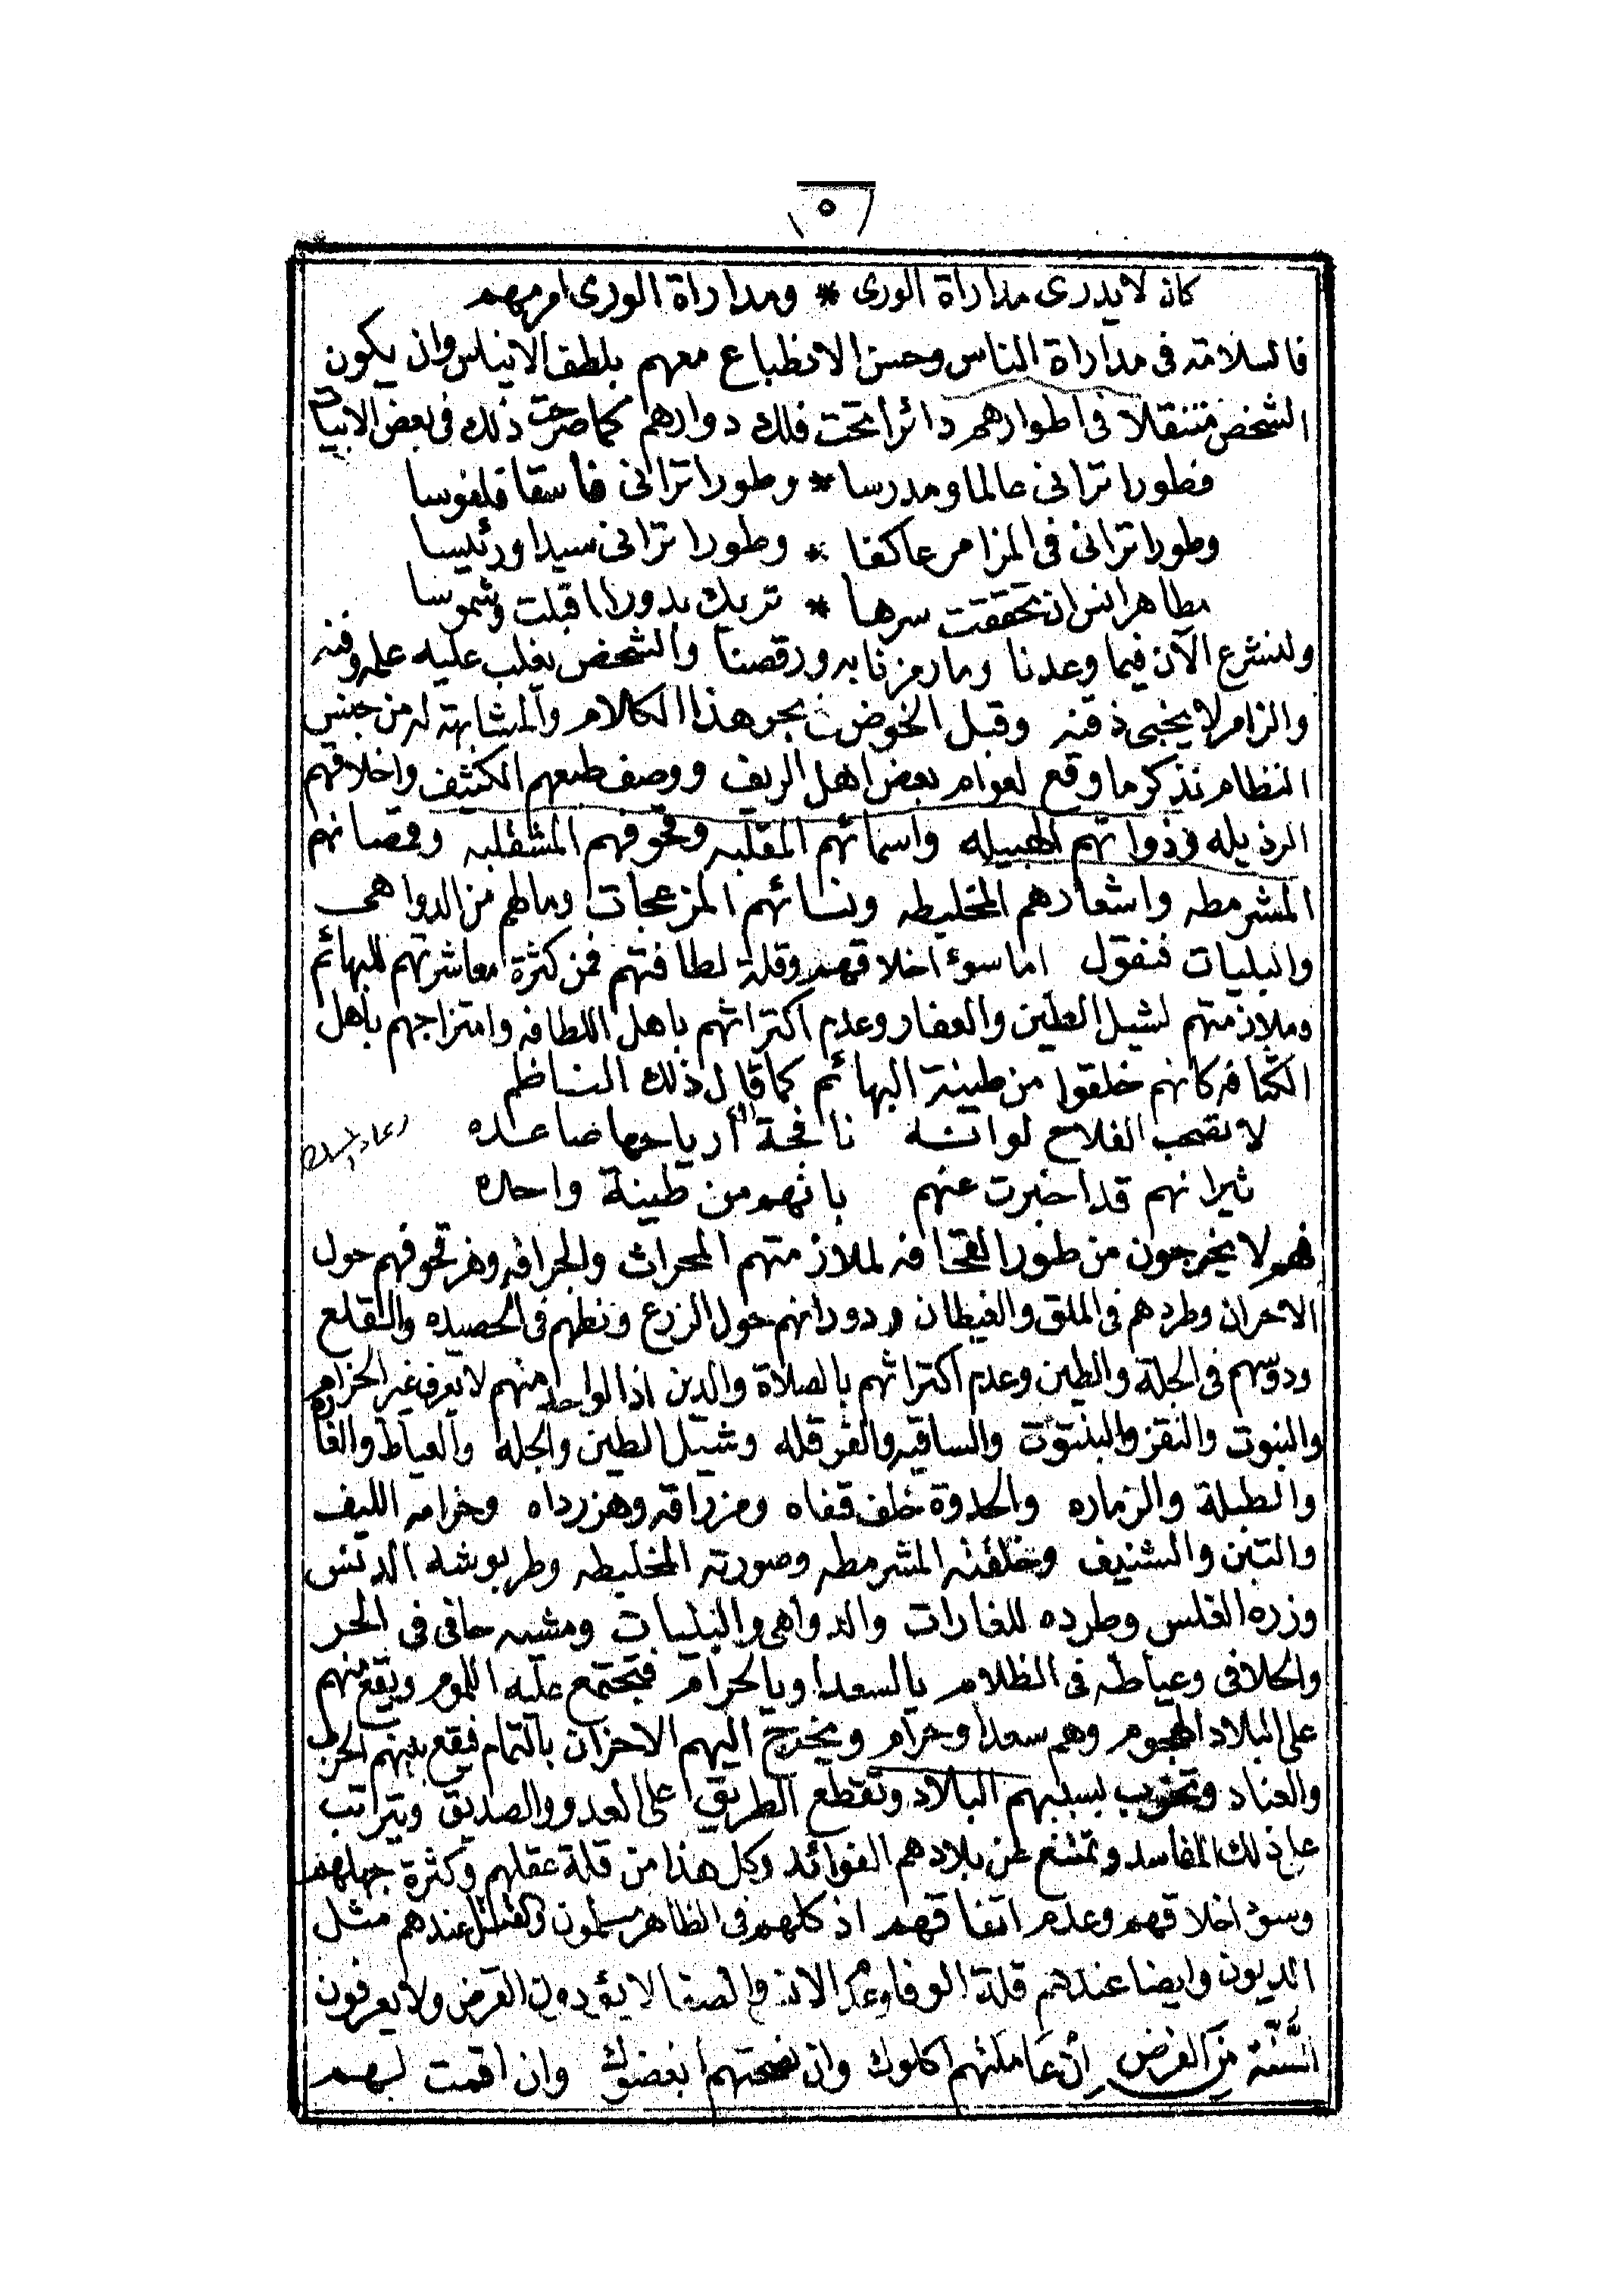 ٥
كان لا يدرى مداراة الورى * ومداراة الورى امر مهم
فالسلامة فى مداراة الناس وحسن الانطباع معهم بلطف الايناس وان يكون
الشخص متنقلا فى اطوارهم دائرا تحت فلك دوارهم كما صرحت ذلك فى بعض الابيات
فطورا ترانى عالما ومدرسا * وطورا ترانى فاسقا فلفوسا
وطورا ترانى فى المزامر عاكفا * وطورا ترانى سيدا ورئيسا
مظاهر انس ان تحققت سرها * تريك بدورا اقبلت وشموسا
ولنشرع الآن فيما وعدنا وما رمزنا به ورقصنا والشخص يغلب عليه علمه وفنه
والزامر لا يخبى ذقنه وقبل الخوض فى بحر هذا الكلام والمشابهة له من جنس
النظام نذكر ما وقع لعوام بعض اهل الريف ووصف طبعهم الكثيف واخلاقهم
الرذيله وذواتهم الهبيله واسمائهم المقلبه وقحوفهم المشقلبه وقمصانهم
المشرمطه واشعارهم المخليطه ونسائهم المزعجات وما لهم من الدواهى
والبليات فنقول اما سوء اخلاقهم وقلة لطافتهم فمن كثرة معاشرتهم للبهائم
وملازمتهم لشيل الطين والعفار وعدم اكتراثهم باهل اللطافه وامتزاجهم باهل
الكثافه كانهم خلقوا من طينة البهائم كما قال ذلك الناظم
لا تصحب الفلاح لو انه نافجة أرياحها صاعده
ثيرانهم قد اخبرت عنهم بانهم من طينة واحده
فهم لا يخرجون من طور القحافه لملازمتهم المحراث والجرافه وهز قحوفهم حول
الاجران وطردهم فى الملق والغيطان ودورانهم حول الزرع ونطهم فى الحصيده والقلع
ودوسهم فى الجلة والطين وعدم اكتراثهم بالصلاة والدين اذ الواحد منهم لا يعرف غير الحزام
والنبوت والنقز والبنتوت والساقيه والفرقله وشيل الطين والجله والعياط والغاره
والطبلة والزماره والحدوة خلف قفاه ومزراقه وهز رداه وحزامه الليف
والتبن والشنيف وخلقته المشرمطه وصورته المخليطه وطربوشه الدنس
وزره الغلس وطرده للغارات والدواهى والبليات ومشيه حافى فى الحر
والحلافى وعياطه فى الظلام يا لسعد او يا لحرام فيجتمع عليه اللموم ويقع منهم
على البلاد الهجوم وهم سعد او حرام ويخرج اليهم الاحزان بالتمام فيقع بينهم الحرب
والعناد وتخرب بسببهم البلاد وتقطع الطريق على العدو والصديق ويتراتب
على ذلك المفاسد وتمتنع عن بلادهم الفوائد وكل هذا من قلة عقلهم وكثرة جهلهم
وسوء اخلاقهم وعدم اتفاقهم اذ كلهم فى الظاهر مسلمون والقتل عندهم مثل
الديون وايضا عندهم قلة الوفا وعدم الانس والصفا لا يؤدون القرض ولا يعرفون
السنة من الفرض ان عاملتهم اكلوك وان نصحتهم ابغضوك وان اقمت لهم